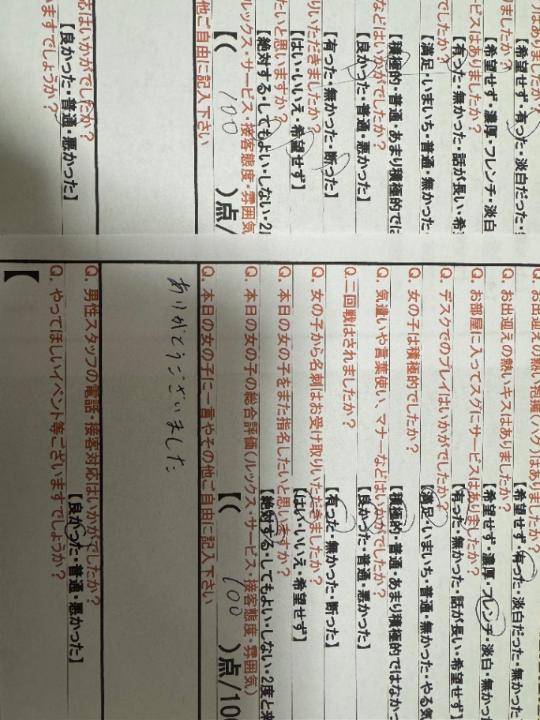 はありましたか?
【希望せず・有った・淡白だった・
ましたか?
【希望せず・濃厚・フレンチ・淡白
ビスはありましたか?
【有った・無かった・話が長い・希
でしたか?
【満足・いまいち・普通・無かった
【積極的・普通・あまり積極的では
などはいかがでしたか?
【良かった・普通・悪かった】
【有った・無かった・断った】
りいただきましたか?
【はい・いいえ・希望せず】
たいと思いますか?
【絶対する・してもよい・しない・2
ルックス・サービス・接客態度・雰囲気
【( 100 )点/
他ご自由に記入下さい
応はいかがでしたか?
【良かった・普通・悪かった】
ますでしょうか?
Q. お出迎えの熱い抱擁(ハグ)はありましたか?
【希望せず・有った・淡白だった・無かっ
Q. お出迎えの熱いキスはありましたか?
【希望せず・濃厚・フレンチ・淡白・無か
Q. お部屋に入ってスグにサービスはありましたか?
【有った・無かった・話が長い・希望せず
Q. デスクでのプレイはいかがでしたか?
【満足・いまいち・普通・無かった・やる気
Q. 女の子は積極的でしたか?
【積極的・普通・あまり積極的ではなかっ
Q. 気遣いや言葉使い、マナーなどはいかがでしたか?
【良かった・普通・悪かった】
Q. 二回戦はされましたか?
【有った・無かった・断った】
Q. 女の子から名刺はお受け取りいただきましたか?
【はい・いいえ・希望せず】
Q. 本日の女の子をまた指名したいと思いますか?
【絶対する・してもよい・しない・2度と来
Q. 本日の女の子の総合評価(ルックス・サービス・接客態度・雰囲気)
【( 100 )点/100
Q. 本日の女の子に一言やその他ご自由に記入下さい
ありがとうございました
Q. 男性スタッフの電話・接客対応はいかがでしたか?
【良かった・普通・悪かった】
Q. やってほしいイベント等ございますでしょうか?
【